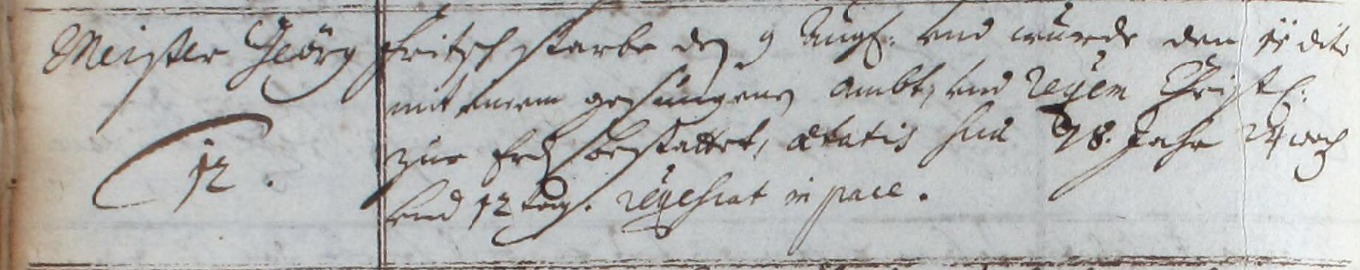 Meister Geörg fritsch starbe den 9 Augs: vnd wurde den 11 dito
mit einem gesungenen Ambt, vnd requiem Christl:
12. zur Erd bestattet, ætatis suæ 78. Jahr 24 woch
vnd 12 tag. requescat in pace.